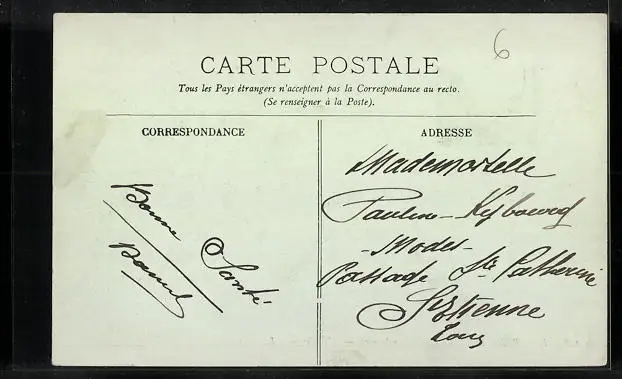 6
CARTE POSTALE
Tous les Pays étrangers n'acceptent pas la Correspondance au recto.
(Se renseigner à la Poste).
CORRESPONDANCE
Bonne
Santé
ADRESSE
Mademoiselle
Pauline
-Modes-
Passage Ste Catherine
St Etienne